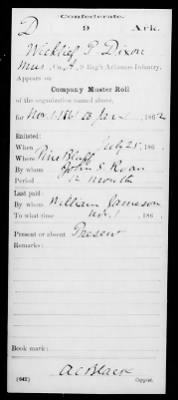 Confederate.
D 9 Ark.
Wickliff P Dixon
Appears on
Company Muster Roll
of the organization named above,
for Nov 1 1861 to Jan 1, 1862
Enlisted:
When July 25, 186
Where Pine Bluff
By whom John S. Roan
Period 12 months
Last paid:
By whom William Jameson
To what time Nov. 1, 186
Present or absent Present
Remarks:
Book mark:
(642) A C Black
Copyist.